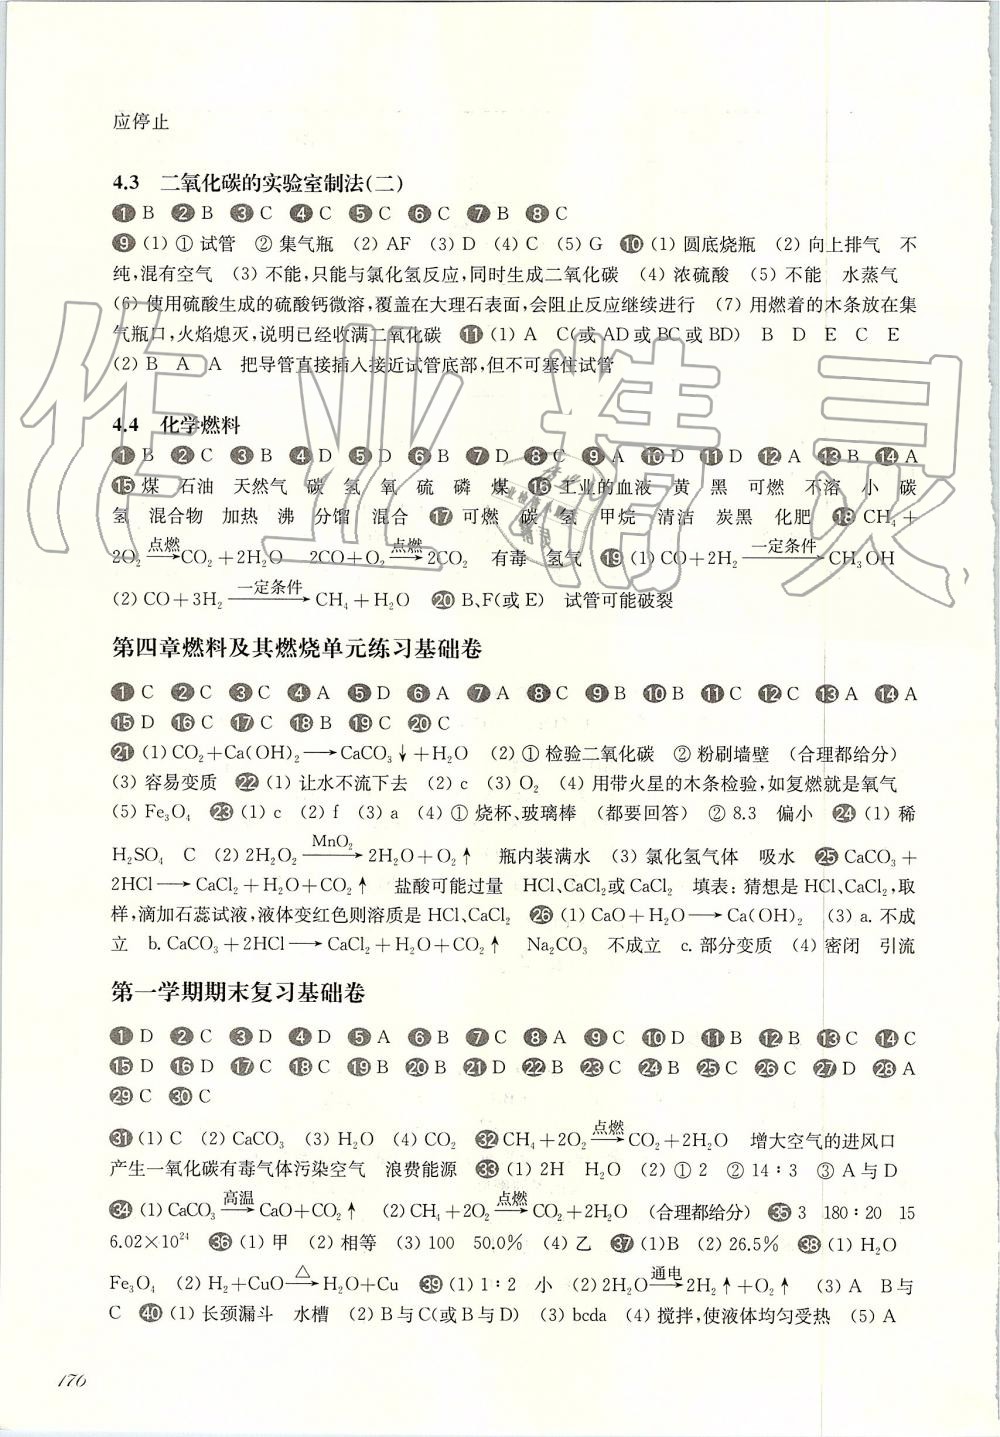 应停止
4.3 二氧化碳的实验室制法(二)
❶ B ❷ B ❸ C ❹ C ❺ C ❻ C ❼ B ❽ C
❾ (1) ① 试管 ② 集气瓶 (2) AF (3) D (4) C (5) G ❿ (1) 圆底烧瓶 (2) 向上排气 不
纯,混有空气 (3) 不能,只能与氯化氢反应,同时生成二氧化碳 (4) 浓硫酸 (5) 不能 水蒸气
(6) 使用硫酸生成的硫酸钙微溶,覆盖在大理石表面,会阻止反应继续进行 (7) 用燃着的木条放在集
气瓶口,火焰熄灭,说明已经收满二氧化碳 ⓫ (1) A C(或 AD 或 BC 或 BD) B D E C E
(2) B A A 把导管直接插入接近试管底部,但不可塞住试管
4.4 化学燃料
❶ B ❷ C ❸ B ❹ D ❺ D ❻ B ❼ D ❽ C ❾ A ❿ D ⓫ D ⓬ A ⓭ B ⓮ A
⓯ 煤 石油 天然气 碳 氢 氧 硫 磷 煤 ⓰ 工业的血液 黄 黑 可燃 不溶 小 碳
氢 混合物 加热 沸 分馏 混合 ⓱ 可燃 碳 氢 甲烷 清洁 炭黑 化肥 ⓲ CH₄+
2O₂ —点燃→ CO₂+2H₂O 2CO+O₂ —点燃→ 2CO₂ 有毒 氢气 ⓳ (1) CO+2H₂ —一定条件→ CH₃OH
(2) CO+3H₂ —一定条件→ CH₄+H₂O ⓴ B、F(或 E) 试管可能破裂
第四章燃料及其燃烧单元练习基础卷
❶ C ❷ C ❸ C ❹ A ❺ D ❻ A ❼ A ❽ C ❾ B ❿ B ⓫ C ⓬ C ⓭ A ⓮ A
⓯ D ⓰ C ⓱ C ⓲ B ⓳ C ⓴ C
㉑ (1) CO₂+Ca(OH)₂ → CaCO₃↓+H₂O (2) ① 检验二氧化碳 ② 粉刷墙壁 (合理都给分)
(3) 容易变质 ㉒ (1) 让水不流下去 (2) c (3) O₂ (4) 用带火星的木条检验,如复燃就是氧气
(5) Fe₃O₄ ㉓ (1) c (2) f (3) a (4) ① 烧杯、玻璃棒 (都要回答) ② 8.3 偏小 ㉔ (1) 稀
H₂SO₄ C (2) 2H₂O₂ —MnO₂→ 2H₂O+O₂↑ 瓶内装满水 (3) 氯化氢气体 吸水 ㉕ CaCO₃+
2HCl → CaCl₂+H₂O+CO₂↑ 盐酸可能过量 HCl、CaCl₂或 CaCl₂ 填表: 猜想是 HCl、CaCl₂,取
样,滴加石蕊试液,液体变红色则溶质是 HCl、CaCl₂ ㉖ (1) CaO+H₂O → Ca(OH)₂ (3) a. 不成
立 b. CaCO₃+2HCl → CaCl₂+H₂O+CO₂↑ Na₂CO₃ 不成立 c. 部分变质 (4) 密闭 引流
第一学期期末复习基础卷
❶ D ❷ C ❸ D ❹ D ❺ A ❻ B ❼ C ❽ A ❾ C ❿ D ⓫ B ⓬ B ⓭ C ⓮ C
⓯ D ⓰ D ⓱ C ⓲ C ⓳ B ⓴ B ㉑ D ㉒ B ㉓ C ㉔ B ㉕ C ㉖ C ㉗ D ㉘ A
㉙ C ㉚ C
㉛ (1) C (2) CaCO₃ (3) H₂O (4) CO₂ ㉜ CH₄+2O₂ —点燃→ CO₂+2H₂O 增大空气的进风口
产生一氧化碳有毒气体污染空气 浪费能源 ㉝ (1) 2H H₂O (2) ① 2 ② 14∶3 ③ A 与 D
㉞ (1) CaCO₃ —高温→ CaO+CO₂↑ (2) CH₄+2O₂ —点燃→ CO₂+2H₂O (合理都给分) ㉟ 3 180∶20 15
6.02×10²⁴ ㊱ (1) 甲 (2) 相等 (3) 100 50.0% (4) 乙 ㊲ (1)B (2) 26.5% ㊳ (1) H₂O
Fe₃O₄ (2) H₂+CuO —△→ H₂O+Cu ㊴ (1) 1∶2 小 (2) 2H₂O —通电→ 2H₂↑+O₂↑ (3) A B 与
C ㊵ (1) 长颈漏斗 水槽 (2) B 与 C(或 B 与 D) (3) bcda (4) 搅拌,使液体均匀受热 (5) A
176
作业精灵